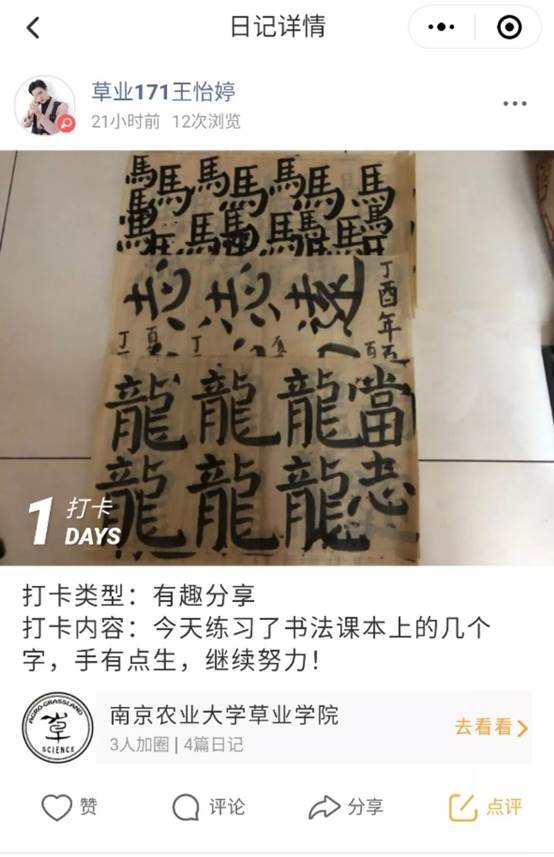 日记详情
草业171王怡婷
21小时前 12次浏览
馬馬馬馬馬馬馬
馬馬馬馬馬馬
丁酉年
龍龍龍當
龍龍龍忠
1 打卡
DAYS
打卡类型：有趣分享
打卡内容：今天练习了书法课本上的几个
字，手有点生，继续努力！
AGRO-GRASSLAND
草
SCIENCE
南京农业大学草业学院
3人加圈 | 4篇日记
去看看
赞 评论 分享 点评